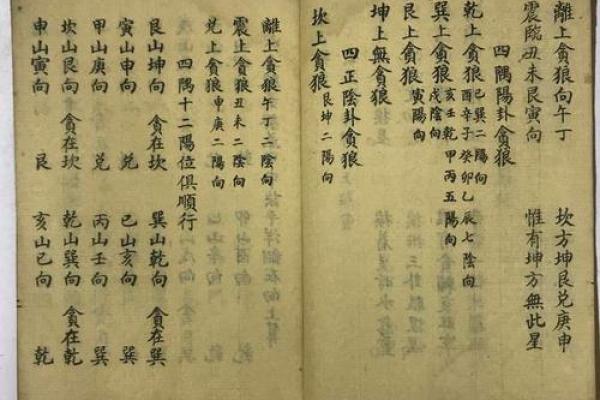 離上貪狼向午丁　坎方坤艮兌庚申
震臨丑未艮寅向　惟有坤方無此星
四隅陽卦貪狼
乾上貪狼　巳巽二陽向
酉辛子癸卯乙辰七陰向
巽上貪狼　亥壬乾甲丙五陽向
戌陰向
艮上貪狼　寅陽向
坤上無貪狼
四正陰卦貪狼
坎上貪狼　艮坤二陽向
離上貪狼午丁二陰向
震上貪狼丑未二陰向
兌上貪狼申庚二陽向
四隅十二陽位俱順行
艮山坤向　貪在坎　巽山乾向　貪在巽
寅山申向　兌　巳山亥向　巽
甲山庚向　兌　丙山壬向　巽
坎山艮向　貪在坎　乾山巽向　貪在乾
申山寅向　艮　亥山巳向　乾